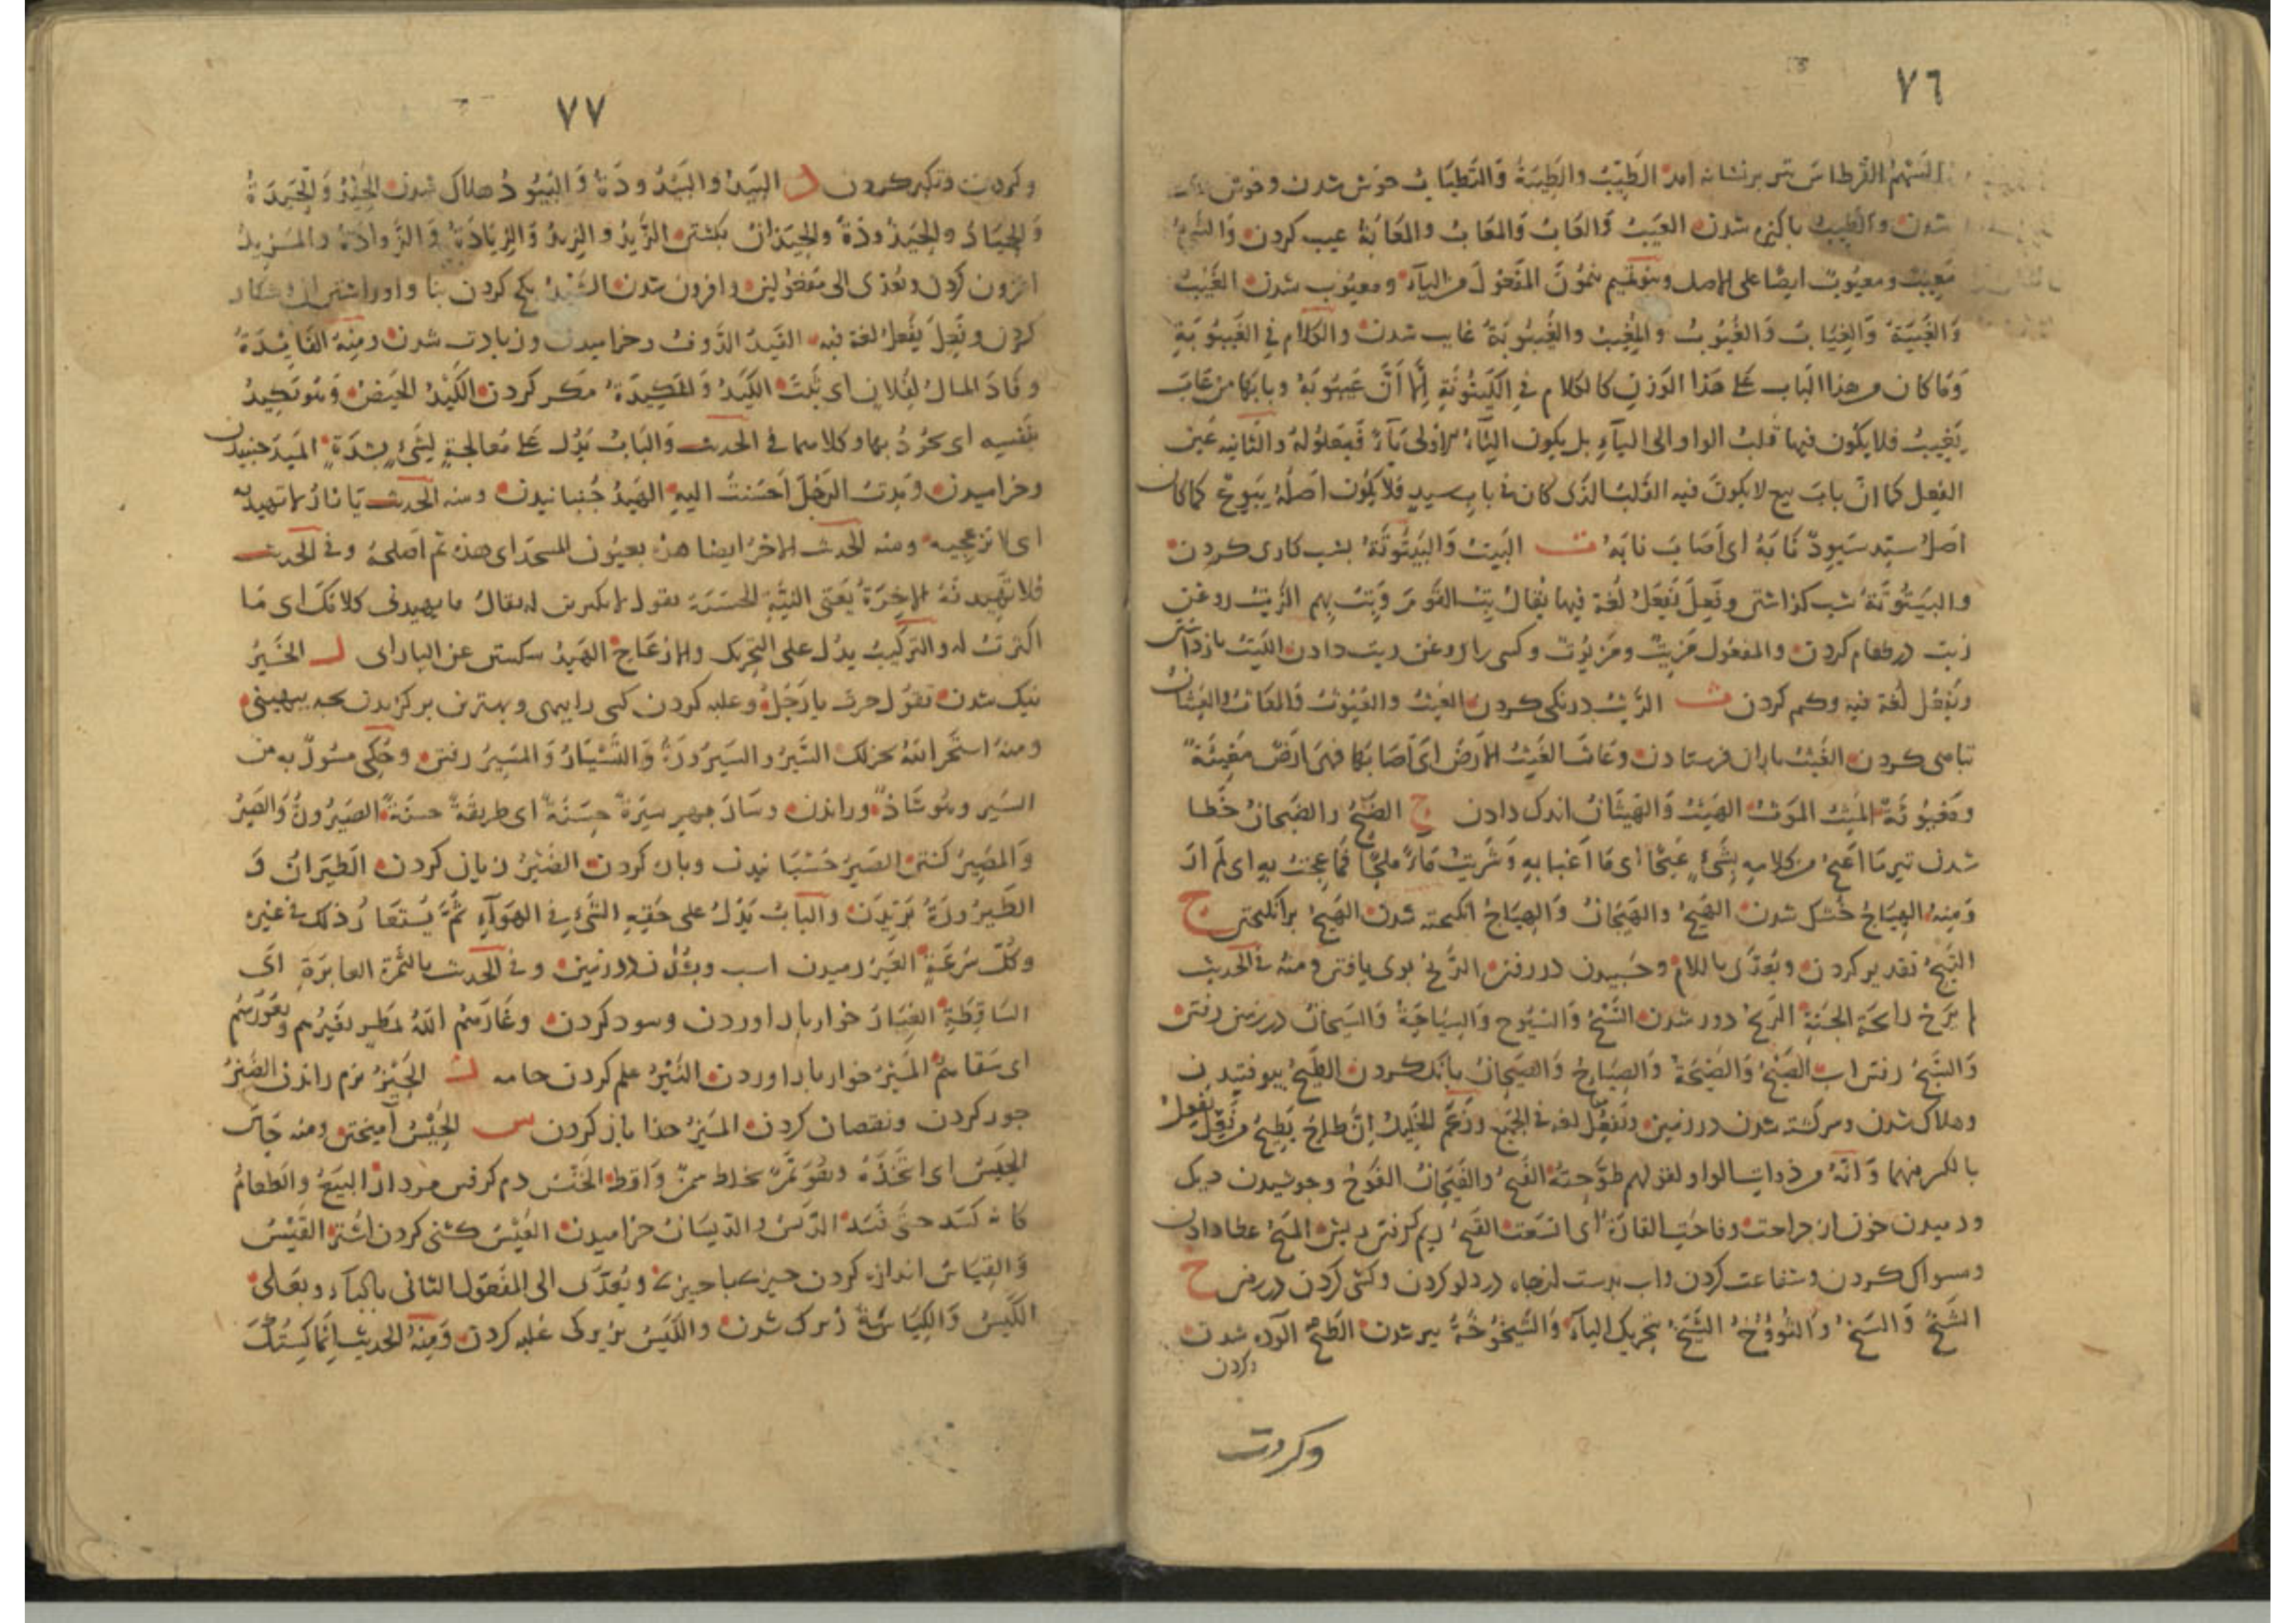 ٧٦
السهم القرطاس تیر برنشانه امد الطِّيبُ والطِّيبَةُ وَالتَّطْيَابُ خوش شدن وخوش
شدن والطيب پاکیزه شدن العَيْبُ وَالعَابُ وَالمَعَابُ والمَعَابَةُ عيب کردن
مَعِيبٌ ومعيُوبٌ ايضًا على الاصل وبنو تميم يتمّون المفعول من الياء ومعيوب شدن الغَيْبُ
وَالغَيْبَةُ وَالغِيَابُ وَالغُيُوبُ والمَغِيبُ والغَيْبُوبَةُ غايب شدن والكلام فى الغَيْبُوبَةِ
وَمَا كان من هذا الباب على هذا الوزن كالكلام فى الكَيْنُونَةِ اِلّا اَنَّ غيبوبة وبابها من غابَ
يَغِيبُ فلا يكون فيها قلب الواو الى الياء بل يكون الياء الاولى ياءَ فَيْعَلُولَةٍ والثانيه عين
الفعل كما انّ بابَ بيع لا يكون فيه القلب الذى كان فى باب سيد فلا يكون اصله يَبيوع كما كان
اصل سيّد سَيوِدٌ نَابَهُ اى اَصَابَ نابَهُ ت البَيْتُ وَالبَيْتُوتَةُ بشب کاری کردن
والبَيْتُوتَةُ شب گذاشتن وفَعِلَ يَفْعَلُ لُغة فيها يُقالُ بِتُّ القَومَ وَبِتُّ بهم الزَّيْتُ روغن
زیت در طعام کردن والمفعول مَزِيتٌ ومَزيُوتٌ وکسی را روغن زیت دادن اللَّيْتُ بازداشتن
ويَفعُلُ لُغة فيه وکم کردن ث الرَّيْثُ درنگی کردن العَيْثُ والعُيُوثُ وَالعَاثُ والعَيَثَانُ
تباهی کردن الغَيْثُ باران فرستادن وغاثَ الغَيْثُ الارضَ اى اَصَابَها فهى ارضٌ مَغِيثَةٌ
ومَغيُوثَةٌ المَيْثُ المَوْثُ الهَيْثُ وَالهَيَثَانُ اندک دادن ج
شدن تیر مَا اَعيجُ من كلامه بِشَىءٍ عَيْجًا اى مَا اَعْبَأ به وَشَرِبْتُ مَاءً مِلْحًا فَمَا عِجْتُ به اى لم اَرْوَ
وَمِنْهُ الهِيَاجُ خشک شدن الهَيْجُ والهَيَجَانُ وَالهِيَاجُ انگیخته شدن الهَيْجُ برانگیختن ح
التَيْحُ تقدیر کردن ويُعدّى باللام وخسبیدن در رفتن الرَّيْحُ بوی یافتن ومنه فى الحديث
لم يَرِحْ رائحة الجنة الزَّيْحُ دور شدن السَّيْحُ وَالسُّيُوحُ وَالسِّيَاحَةُ وَالسَّيَحَانُ در زمین رفتن
وَالسَّيْحُ رفتن اب الصَّيْحُ وَالصَّيْحَةُ وَالصِّيَاحُ وَالصَّيَحَانُ بانگ کردن الطَّيْحُ بیوفتیدن
وهلاک شدن وسرگشته شدن در زمین ويَفعُلُ لغة فى الجَميع وزَعَمَ الخليل اِنّ طاحَ يَطيحُ فَعِلَ يَفْعِلُ
بالكسر منهما وَاَنَّهُ من ذوات الواو لقولهم طَوَّحتُهُ الفَيْحُ والفَيَحَانُ الفَوْحُ وجوشیدن دیگ
ودمیدن خون از جراحت وفاحت الغارةُ اى اتّسَعَت القَيْحُ ریم گرفتن ریش المَيْحُ عطا دادن
ومسواک کردن وشفاعت کردن واب بدست از چاه در دلو کردن وکشی کردن در رفتن خ
الشَّيْخُ وَالشَّيَخُ بتحريك الياء وَالشَّيْخُوخَةُ پیر شدن الطَّيْخُ آلوده شدن
وکردن
وکردن
٧٧
وکردن وتکبر کردن د البَيْدُ والبَيْدُودَةُ وَالبُيُودُ هلاک شدن الحَيْدُ وَالحَيْدَةُ
وَالحِيَادُ والحَيْدُودَةُ والحَيَدَانُ بگشتن الزَّيْدُ والزِيدُ وَالزِيَادَةُ وَالزَوَادَةُ والمَزِيدُ
افزون کردن ويُعدّى الى مَفعُولَين وافزون شدن الشَيْدُ بگچ کردن بنا
کردن وفَعِلَ يَفْعَلُ لغة فيه الفَيْدُ الذَّوفُ وخرامیدن وزیادت شدن ومِنهُ الفَائِدَةُ
وفَادَ المالُ لِفُلانٍ اى ثَبَتَ الكَيْدُ وَالمَكِيدَةُ مَکر کردن الكَيْدُ الحَيْضُ وَهُوَ يَكِيدُ
بنَفسِه اى يجُودُ بها وكلاهما فى الحديث وَالبابُ يَدُل على مُعالجةٍ لِشَىءٍ بِشِدّةٍ المَيْدُ جنبیدن
وخرامیدن ومِدتُ الرَجُلَ اَحسَنتُ اليه الهَيْدُ جُنبانیدن ومنه الحديث يَا نارُ لا تهيديه
اى لا تُزعِجيه ومنه الحديث الاخر ايضا هِدْهُ يعنون المسجد اى هُدّه ثم اَصلِحهُ وفى الحديث
فَلا تَهِيدَنَّهُ الاخِرَةُ يَعنى النيّة الحَسَنَة يقول لا يكبرن له يقالُ ما يهيدنى كلامُكَ اى مَا
اكترثُ له والتركيب يدُل على التحريك والازعَاج الهَيْدُ ر الخَيْرُ
نیک شدن تَقوُل خِرتَ يا رَجُلُ وغلبه کردن کسی را ببهی وبهترین برگزیدن
ومنه استَخِر اللهَ يَخِر لك السَّيْرُ والسَيْرُورَةُ وَالتَسْيَارُ وَالمَسِيرُ رفتن وحُكِى مَسُورٌ به من
السَيْر وهُو شاذٌّ وراندن وسَارَ بهم سِيرَةً حَسَنَةً اى طريقةً حسنةً الصَيْرُورَةُ وَالصَيْرُ
وَالمَصِيرُ گشتن الصَيْرُ چَسْبانیدن وپاره کردن الضَيْرُ زیان کردن الطَيَرَانُ وَ
الطَيْرُورَةُ پریدن والبَابُ يَدُلُ على خِفّةِ الشَىء فى الهَوَاءِ ثُمّ يُستَعَارُ ذلك فى غيره
وكُلِّ سُرعَةٍ العَيْرُ رمیدن اسب وبشدن در زمین وفى الحديث بالتمرة العائرة اى
السَاقِطَةِ الغِيَارُ خواربار اوردن وسود کردن وغارَهُمُ اللهُ بمَطَرٍ يَغيرُهم ويَغُورُهُم
اى سَقاهُم المَيْرُ خواربار اوردن النَّيْرُ علم کردن جامه ز الجَيْزُ نرم راندن الضَّيْزُ
جور کردن ونقصان کردن المَيْزُ جدا باز کردن س الحَيْسُ آمیختن ومنه حَاسَ
الحَيْسَ اى اتّخَذَهُ وهُوَ تَمرٌ يخلط بسَمنٍ وَاَقِطٍ الخَيْسُ دم گرفتن مردار البَيعُ والطعامُ
كانه كسد حتّى فَسَدَ الرَيْسُ والرَيَسَانُ خرامیدن العَيْسُ گشنی کردن اشتر القَيْسُ
وَالقِيَاسُ اندازه کردن چیزی با چیزی ويُعدّى الى المَفعُول الثانى بالباء وبعَلى
الكَيْسُ وَالكِيَاسَةُ زیرک شدن والكَيْسُ بزیرکی غلبه کردن ومِنْهُ الحديث اِنَّمَا كِسْتُكَ